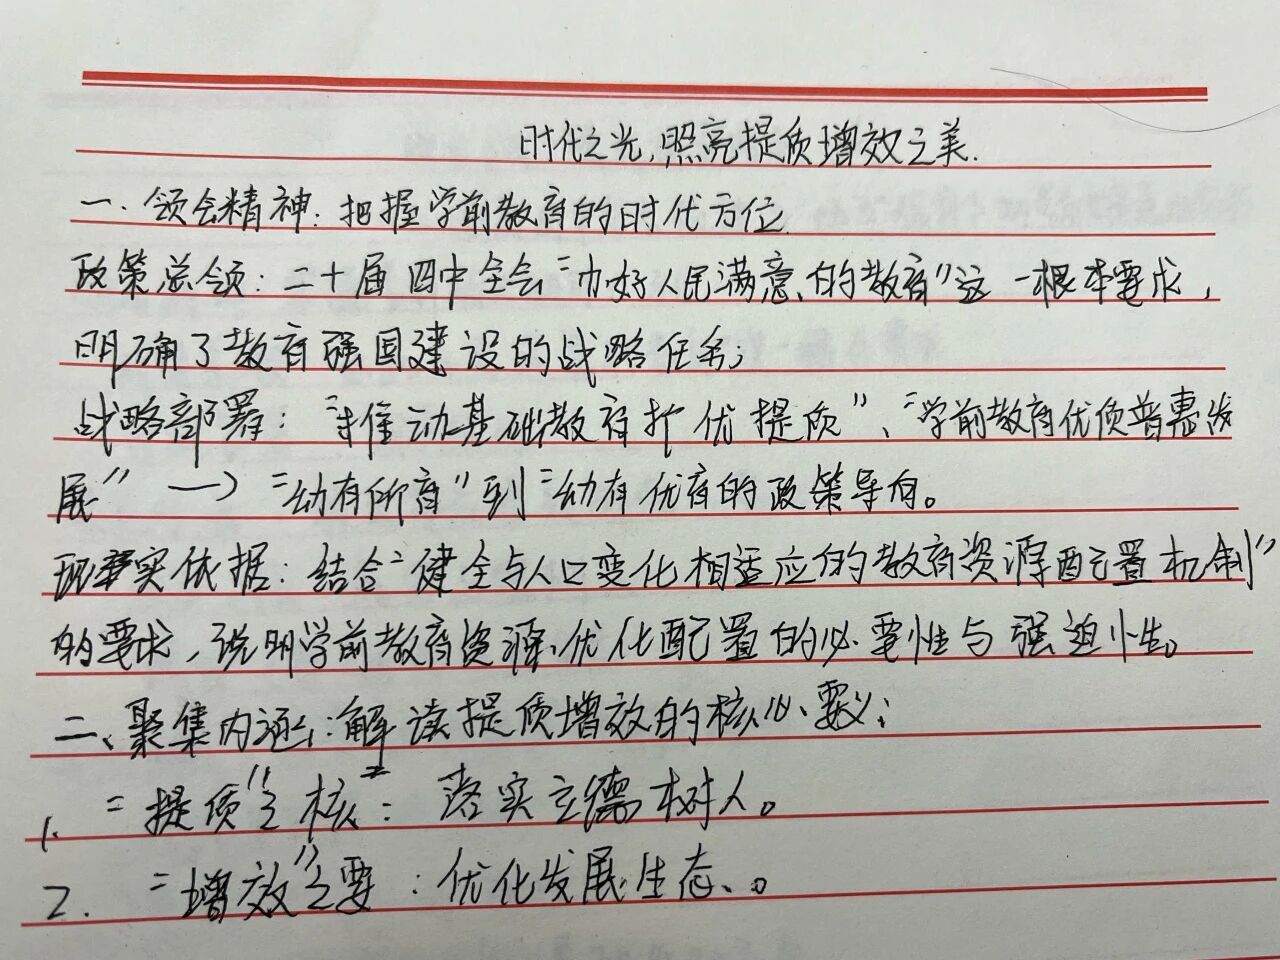 时代之光,照亮提质增效之美.
一.领会精神:把握学前教育的时代方位.
政策总领:二十届四中全会“办好人民满意的教育”这一根本要求,
明确了教育强国建设的战略任务;
战略部署:“推动基础教育扩优提质”、“学前教育优质普惠发
展”—>“幼有所育”到“幼有优育的政策导向。
现实依据:结合“健全与人口变化相适应的教育资源配置机制”
的要求,说明学前教育资源优化配置的必要性与强迫性。
二、聚集内涵:解读提质增效的核心要义;
1.“提质”之核:落实立德树人。
2.“增效”之要:优化发展生态。